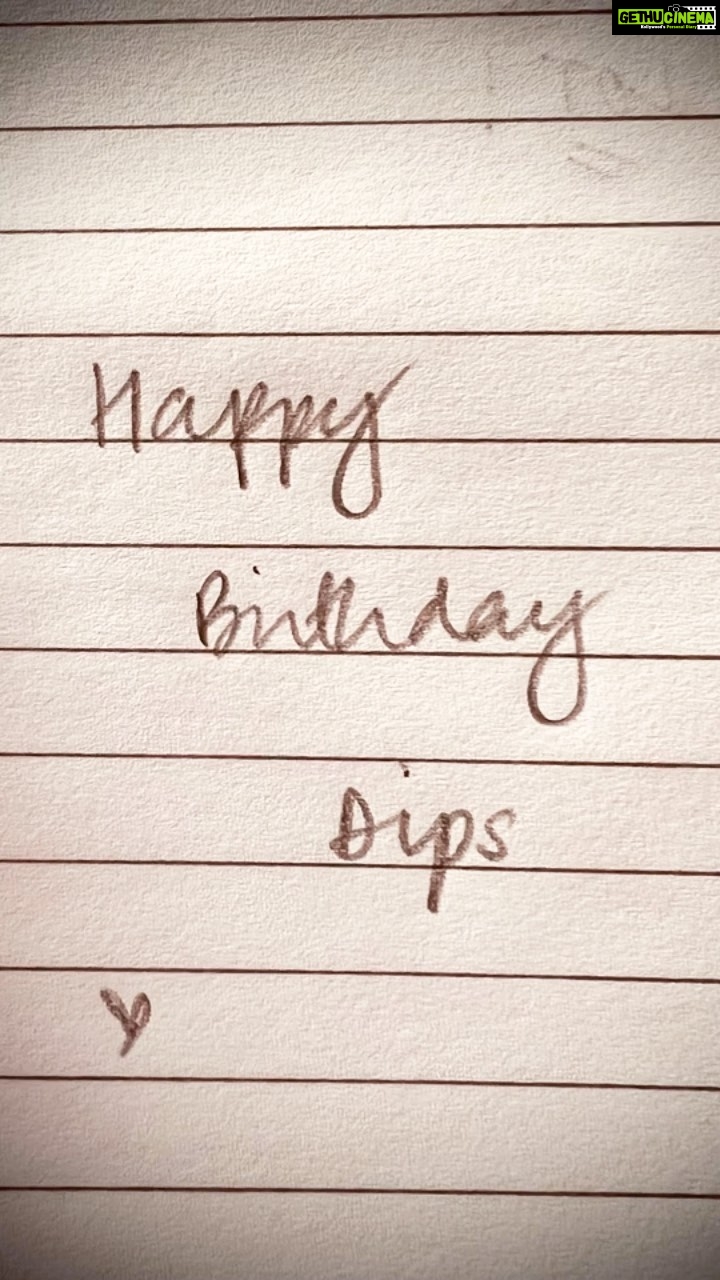 GETHUCINEMA
Kollywood's Personal Diary
Happy
Birthday
Dips